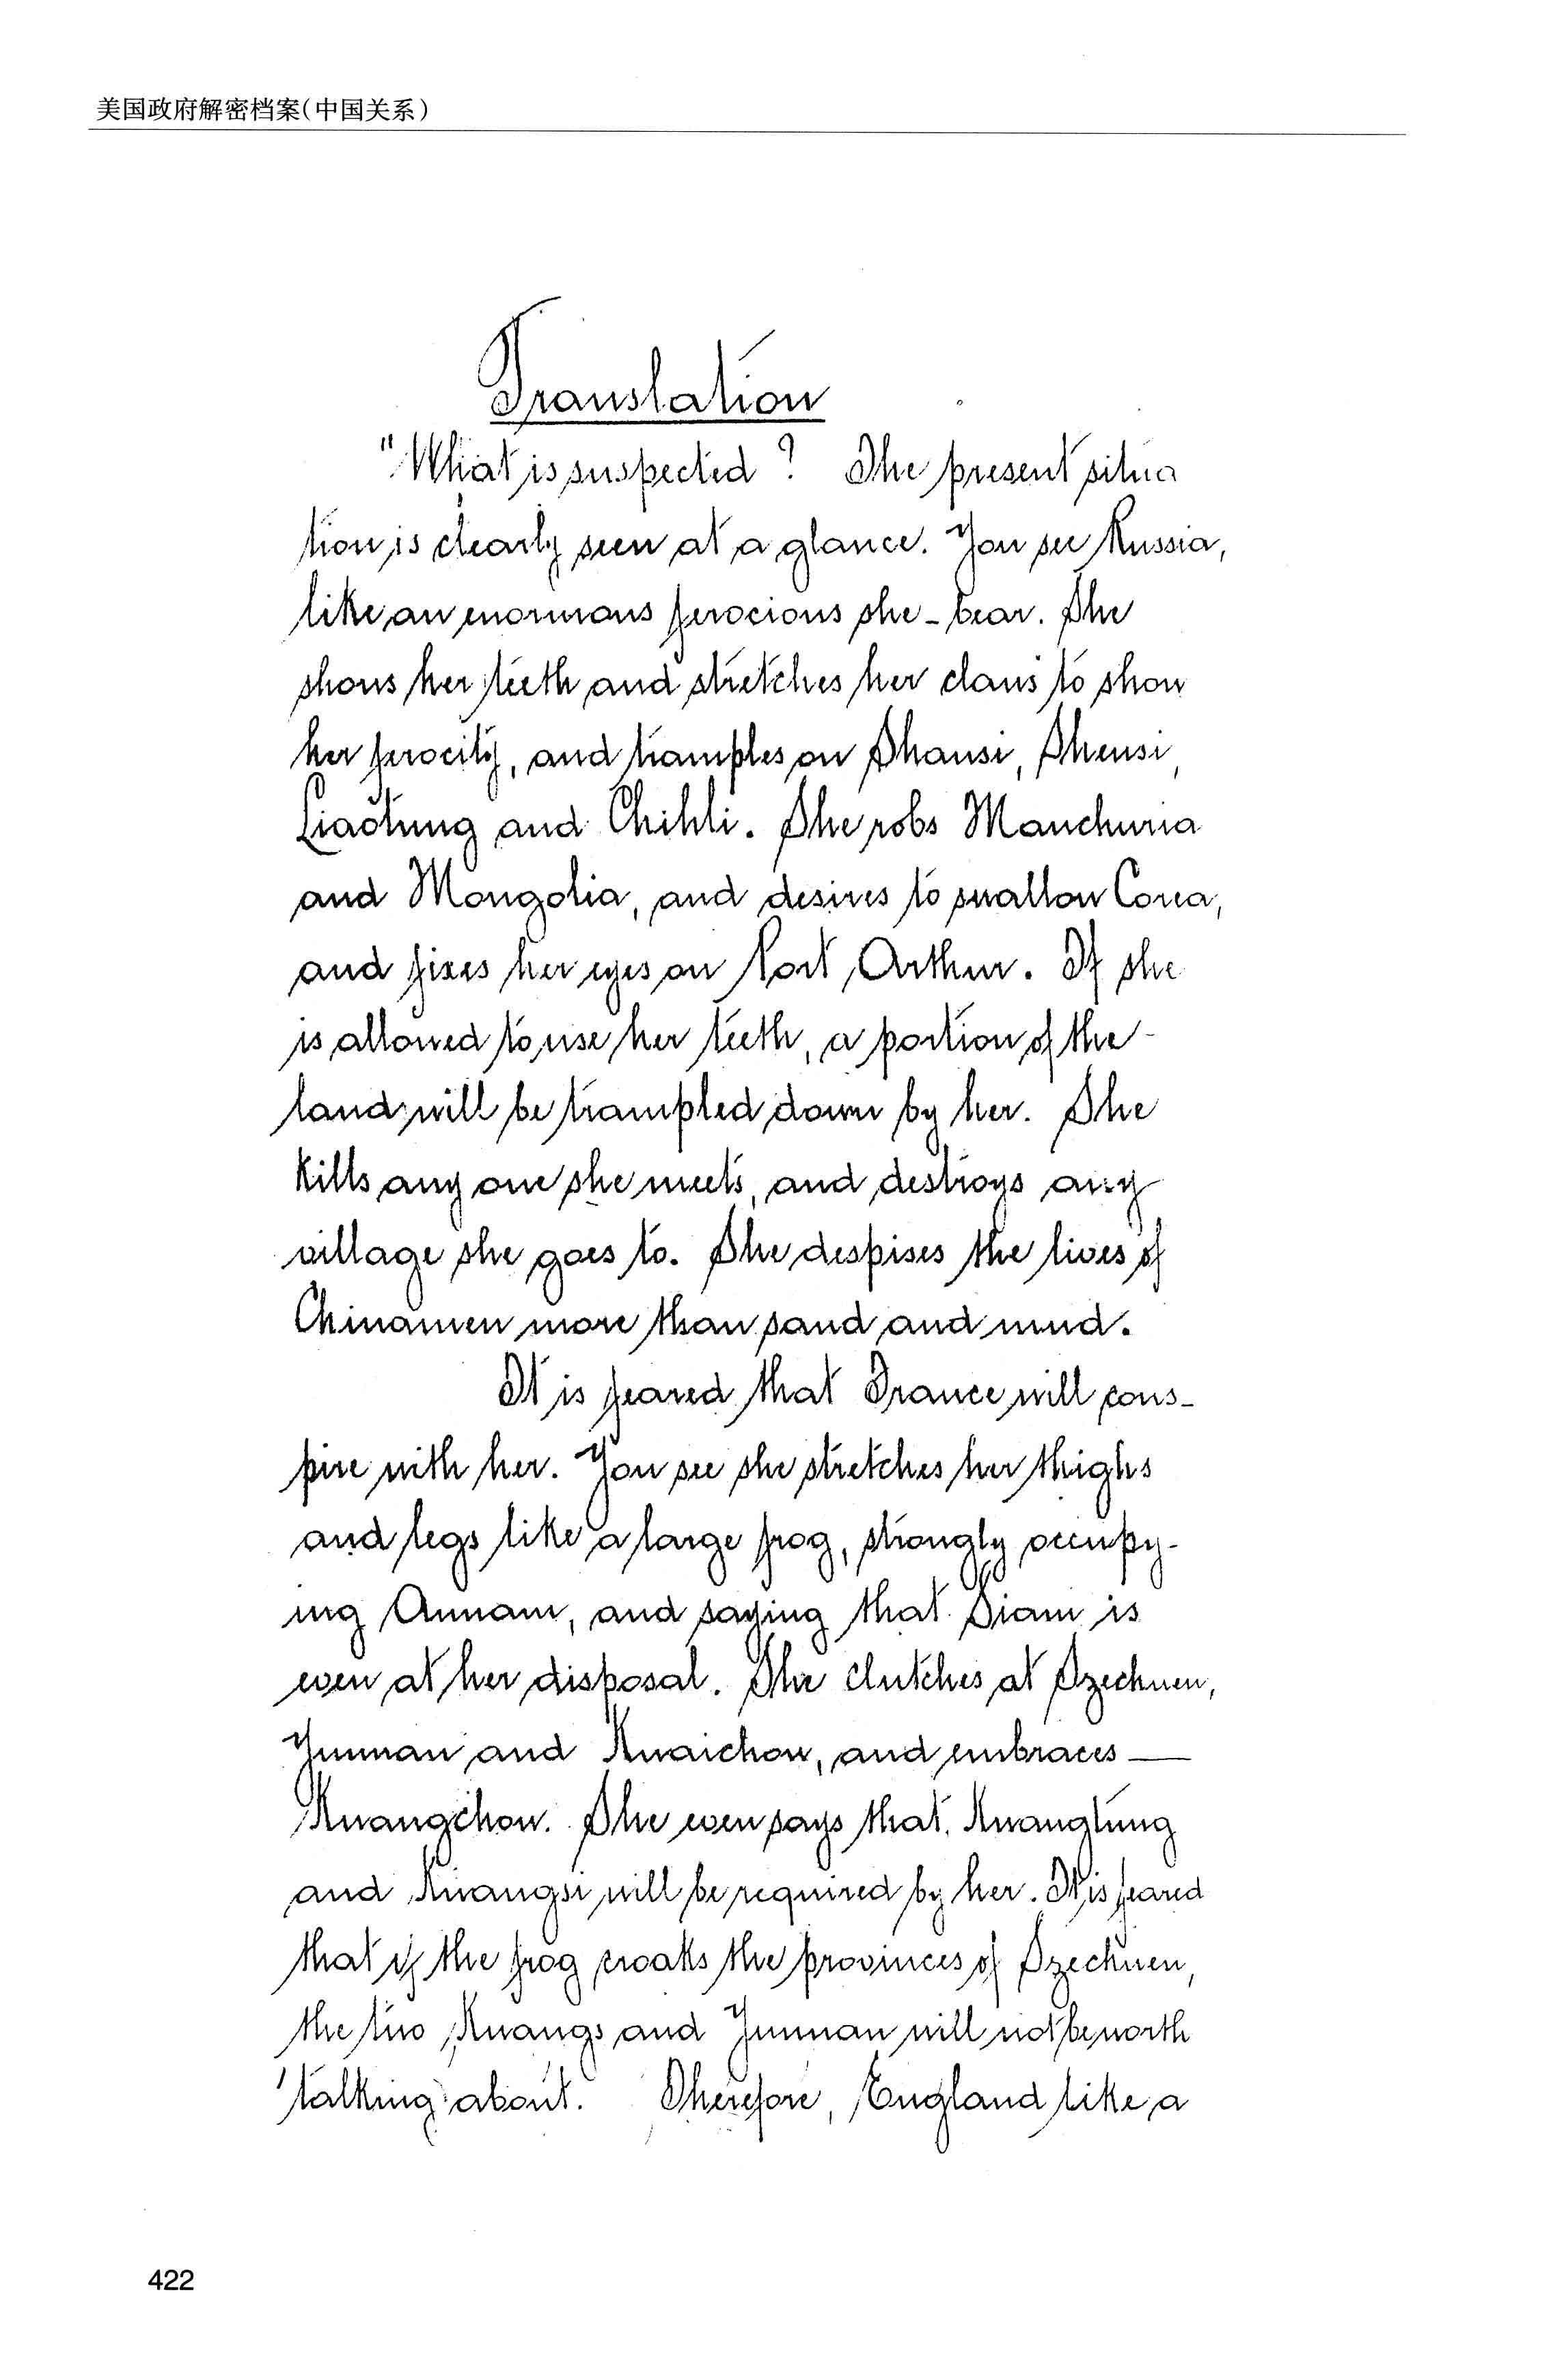 美国政府解密档案(中国关系)
Translation
"What is suspected? The present situa
tion is clearly seen at a glance. You see Russia,
like an enormous ferocious she-bear. She
shows her teeth and stretches her claws to show
her ferocity, and tramples on Shansi, Shensi,
Liaotung and Chihli. She robs Manchuria
and Mongolia, and desires to swallow Corea,
and fixes her eyes on Port Arthur. If she
is allowed to use her teeth, a portion of the
land will be trampled down by her. She
kills any one she meets, and destroys any
village she goes to. She despises the lives of
Chinamen more than sand and mud.
It is feared that France will cons-
pire with her. You see she stretches her thighs
and legs like a large frog, strongly occupy-
ing Annam, and saying that Siam is
even at her disposal. She clutches at Szechuen,
Yunnan and Kwaichow, and embraces—
Kwangchow. She even says that Kwangtung
and Kwangsi will be required by her. It is feared
that if the frog croaks the provinces of Szechuen,
the two Kwangs and Yunnan will not be worth
talking about. Therefore, England like a
422